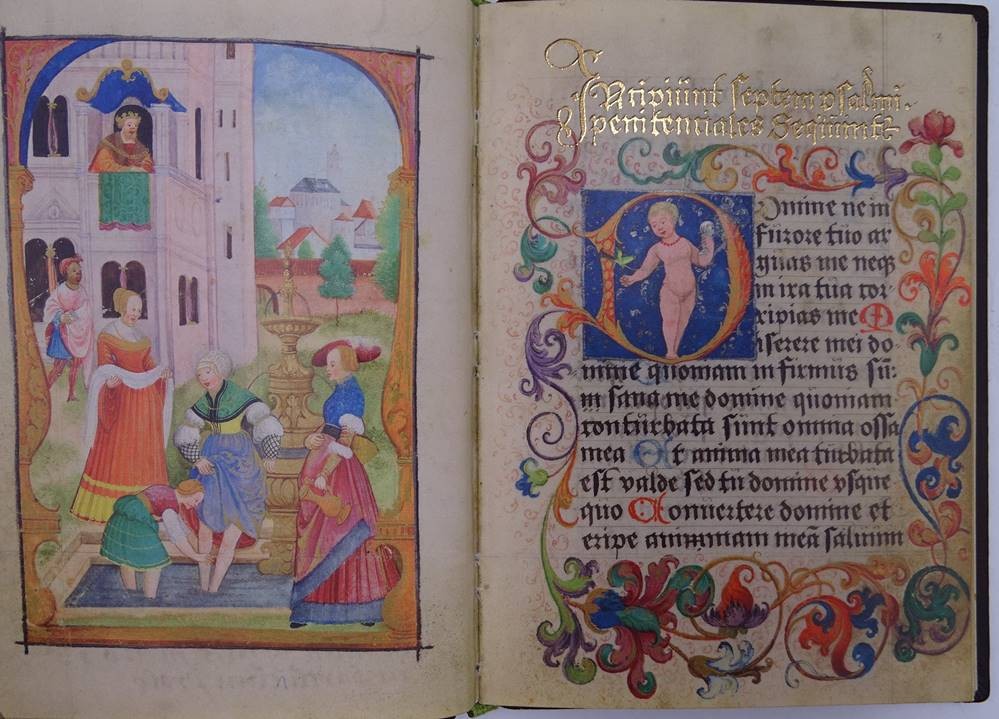 Incipiunt septem psalmi
penitentiales Sequunt
Domine ne in
furore tuo ar
guas me neqz
in ira tua cor
ripias me M
iserere mei do
mine quoniam infirmus su
m sana me domine quoniam
conturbata sunt omnia ossa
mea Et anima mea turbata
est valde sed tu domine vsque
quo Conuertere domine et
eripe animmam meā saluum